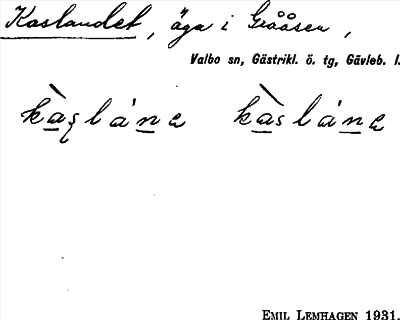 Kaslandet, äga i Grååsen,
Valbo sn, Gästrikl. ö. tg, Gävleb. l.
kàslánɐ kàslánɐ
EMIL LEMHAGEN 1931.